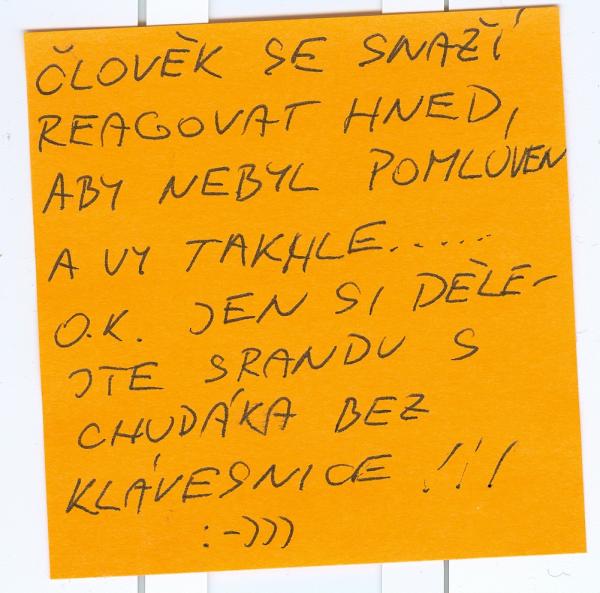 ČLOVĚK SE SNAŽÍ
REAGOVAT HNED,
ABY NEBYL POMLUVEN
A VY TAKHLE.....
O.K. JEN SI DĚLE-
JTE SRANDU S
CHUDÁKA BEZ
KLÁVESNICE !!!
:-)))